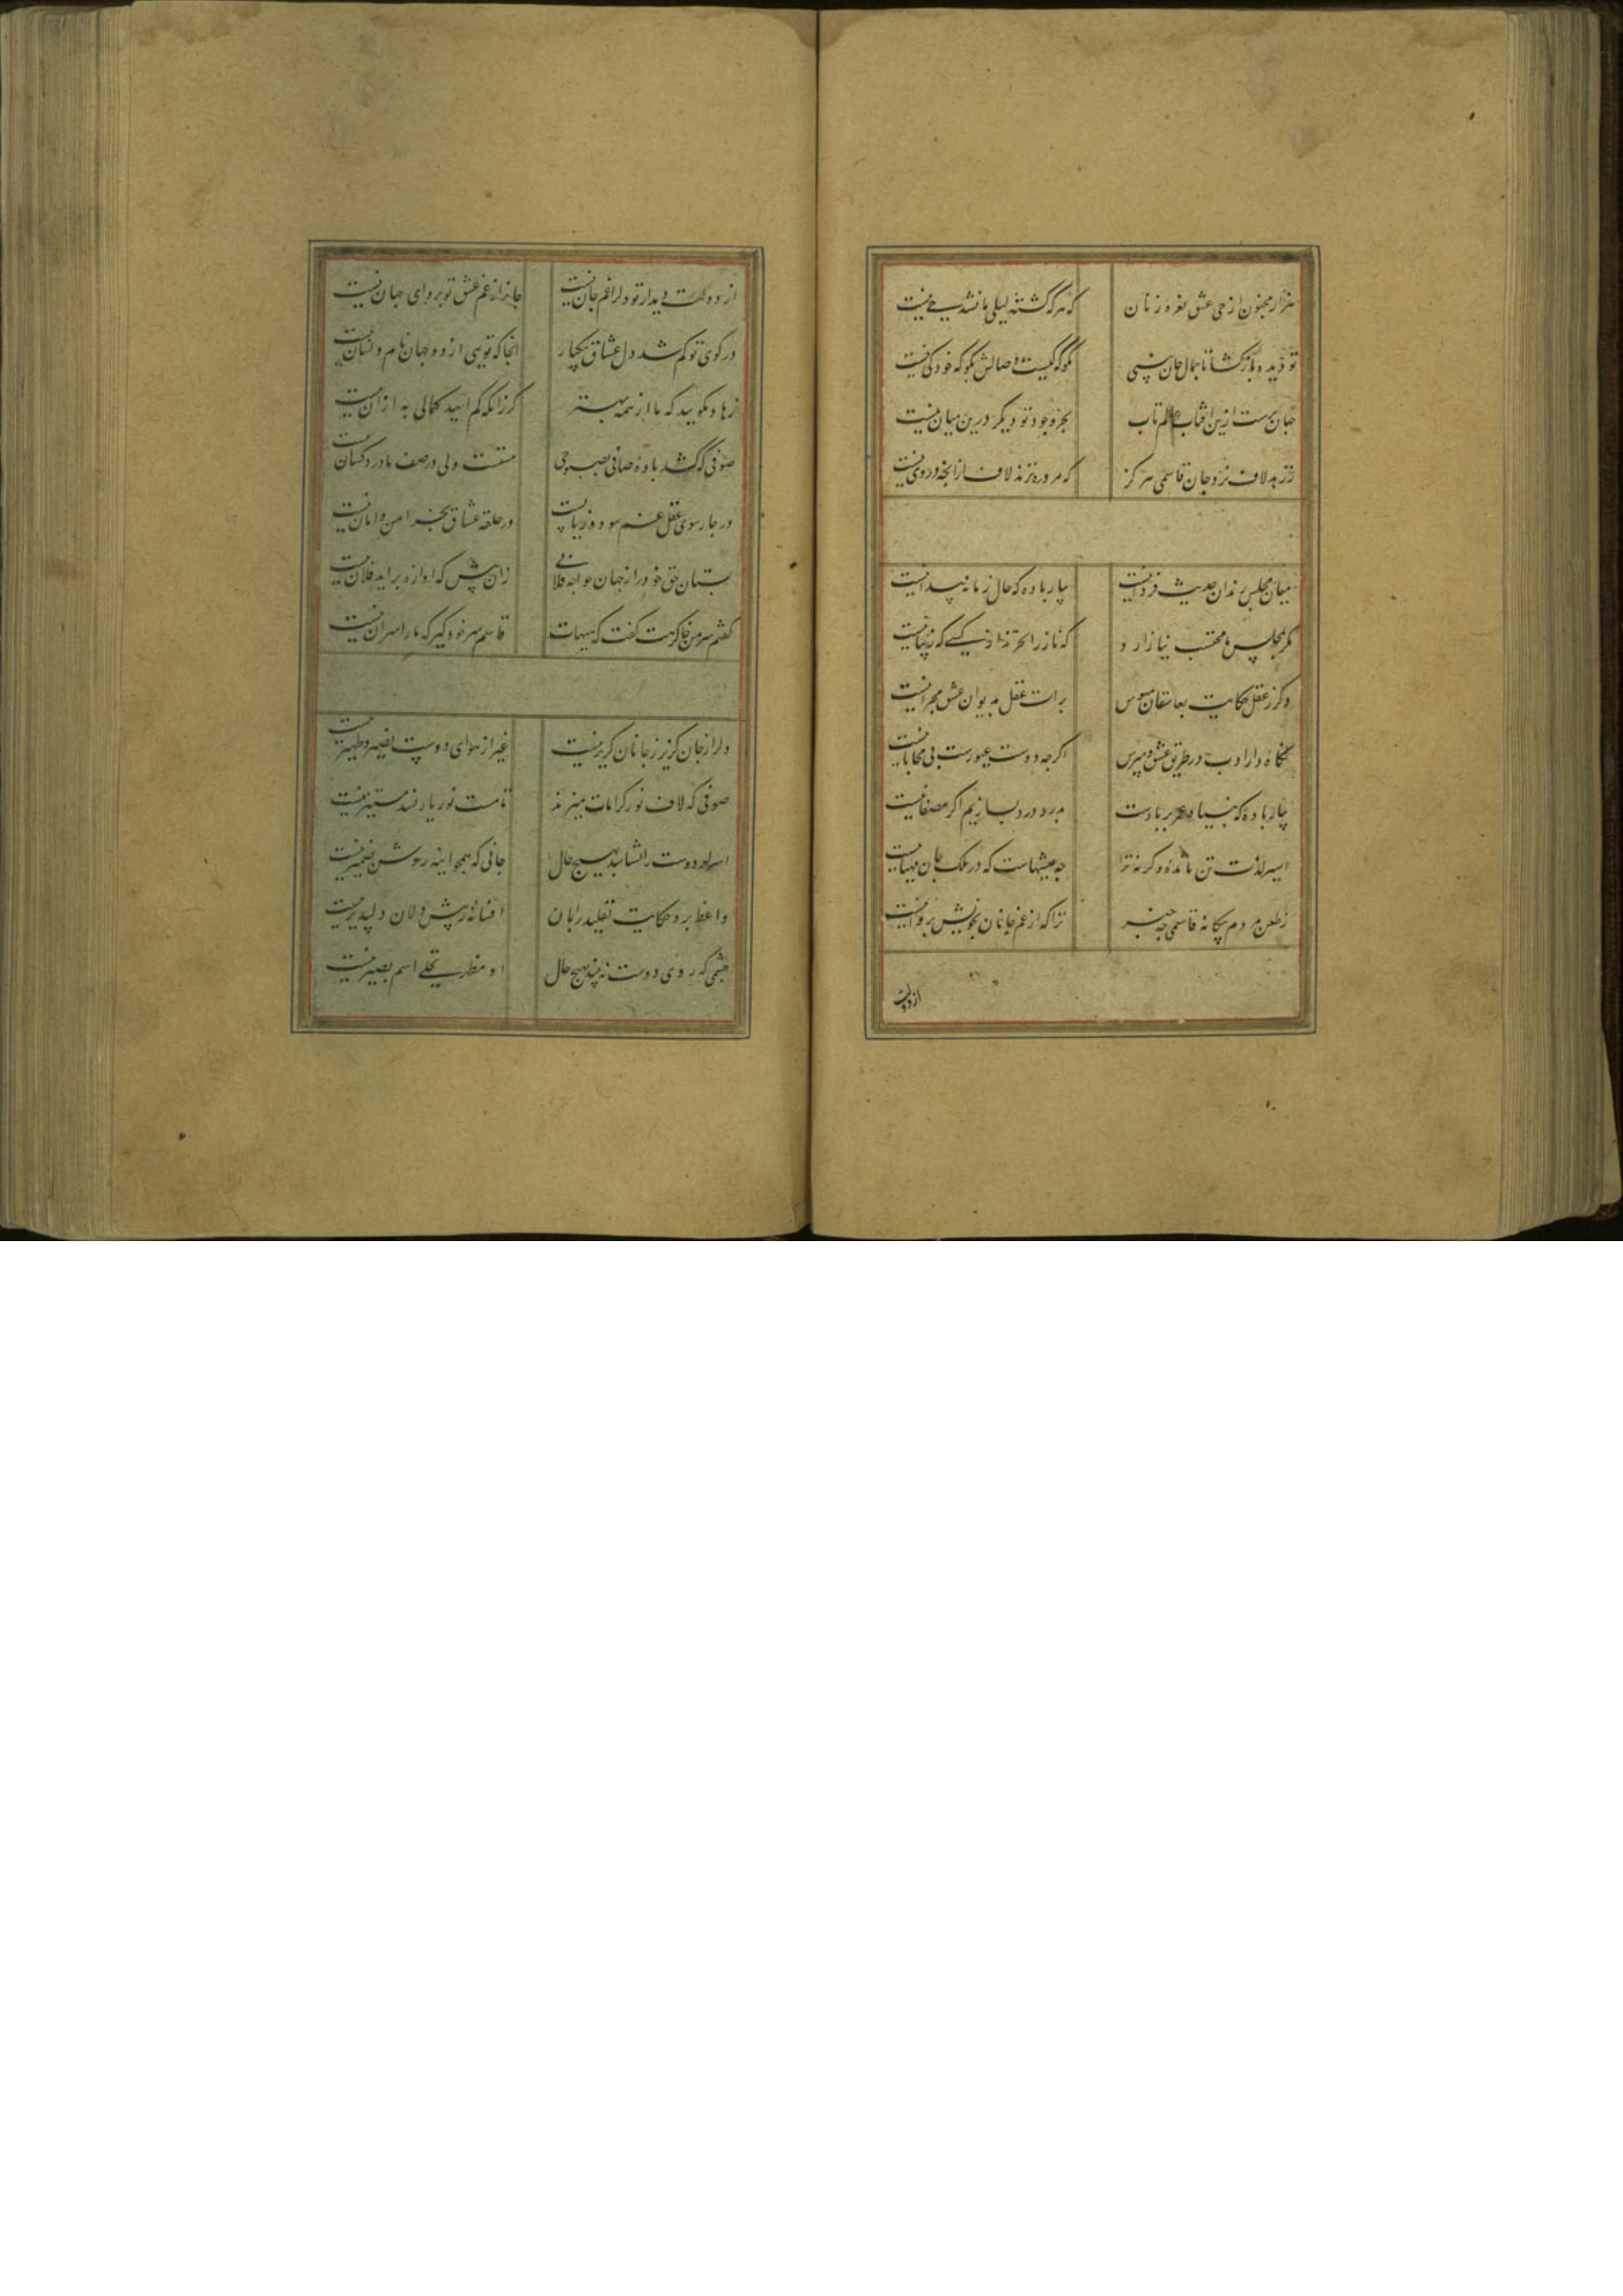 هزار مجنون از حی عشق نعره زنان که هر که کشته لیلی ما نشد حی نیست
تو دیده باز کشا تا جمال جان بینی مکو که کیست وصالش مکو که خود کی نیست
جهان پرست ازین افتاب عالم تاب بجز وجود تو دیکر درین میان فی نیست
ز زهد لاف نزد جان قاسمی هرکز که مرد ره نزند لاف از انچه در وی نیست
میان مجلس رندان حدیث فردا نیست بیار باده که حال زمانه پیدا نیست
مکر بمجلس ما محتسب نیازارد که ناز را نخرند از کسی که زیبا نیست
وکر ز عقل حکایت بعاشقان منویس برات عقل بدیوان عشق مجرا نیست
نکاه دار ادب در طریق عشق و مپرس اکرچه دوست غیورست بی محابا نیست
بیار باده که بنیاد عمر بر بادست بدرد درد بسازیم اکر مصفا نیست
اسیر لذت تن مانده وکرنه ترا چه عیشهاست که در ملک جان مهیا نیست
ز طعن مردم بیکانه قاسمی چه خبر ترا که از غم جانان بخویش پروا نیست
از دولت
از دولت دیدار تو دلرا غم جان نیست جانرا ز غم عشق تو پروای جهان نیست
در کوی تو کم شد دل عشاق بیکبار انجا که تویی از دو جهان نام و نشان نیست
زهاد مکویید که ما از همه بهتر کر زانکه کم ایید کمالی به ازان نیست
صوفی که کشد باده صافی بصبوحی مستست ولی در صف ما دردکشان نیست
در چارسوی عقل غم سود و زیانست در حلقه عشاق بجز امن و امان نیست
بستان حق خود را ز جهان خواجه فلانی زان پیش که اواز براید فلان نیست
کفتم سر من خاک رهت کفت که هیهات قاسم سر خود کیر که ما را سر ان نیست
دلرا ز جان کزیر ز جانان کزیر نیست غیر از هوای دوست نصیر و ظهیر نیست
صوفی که لاف نور کرامات میزند تا مست نور یار نشد مستنیر نیست
اسرار دوست را نشناسد بهیچ حال جانی که همچو اینه روشن ضمیر نیست
واعظ برو حکایت تقلید را بمان افسانه پیش دلان دلپذیر نیست
چشمی که روی دوست نبیند بهیچ حال او مظهر تجلی اسم بصیر نیست